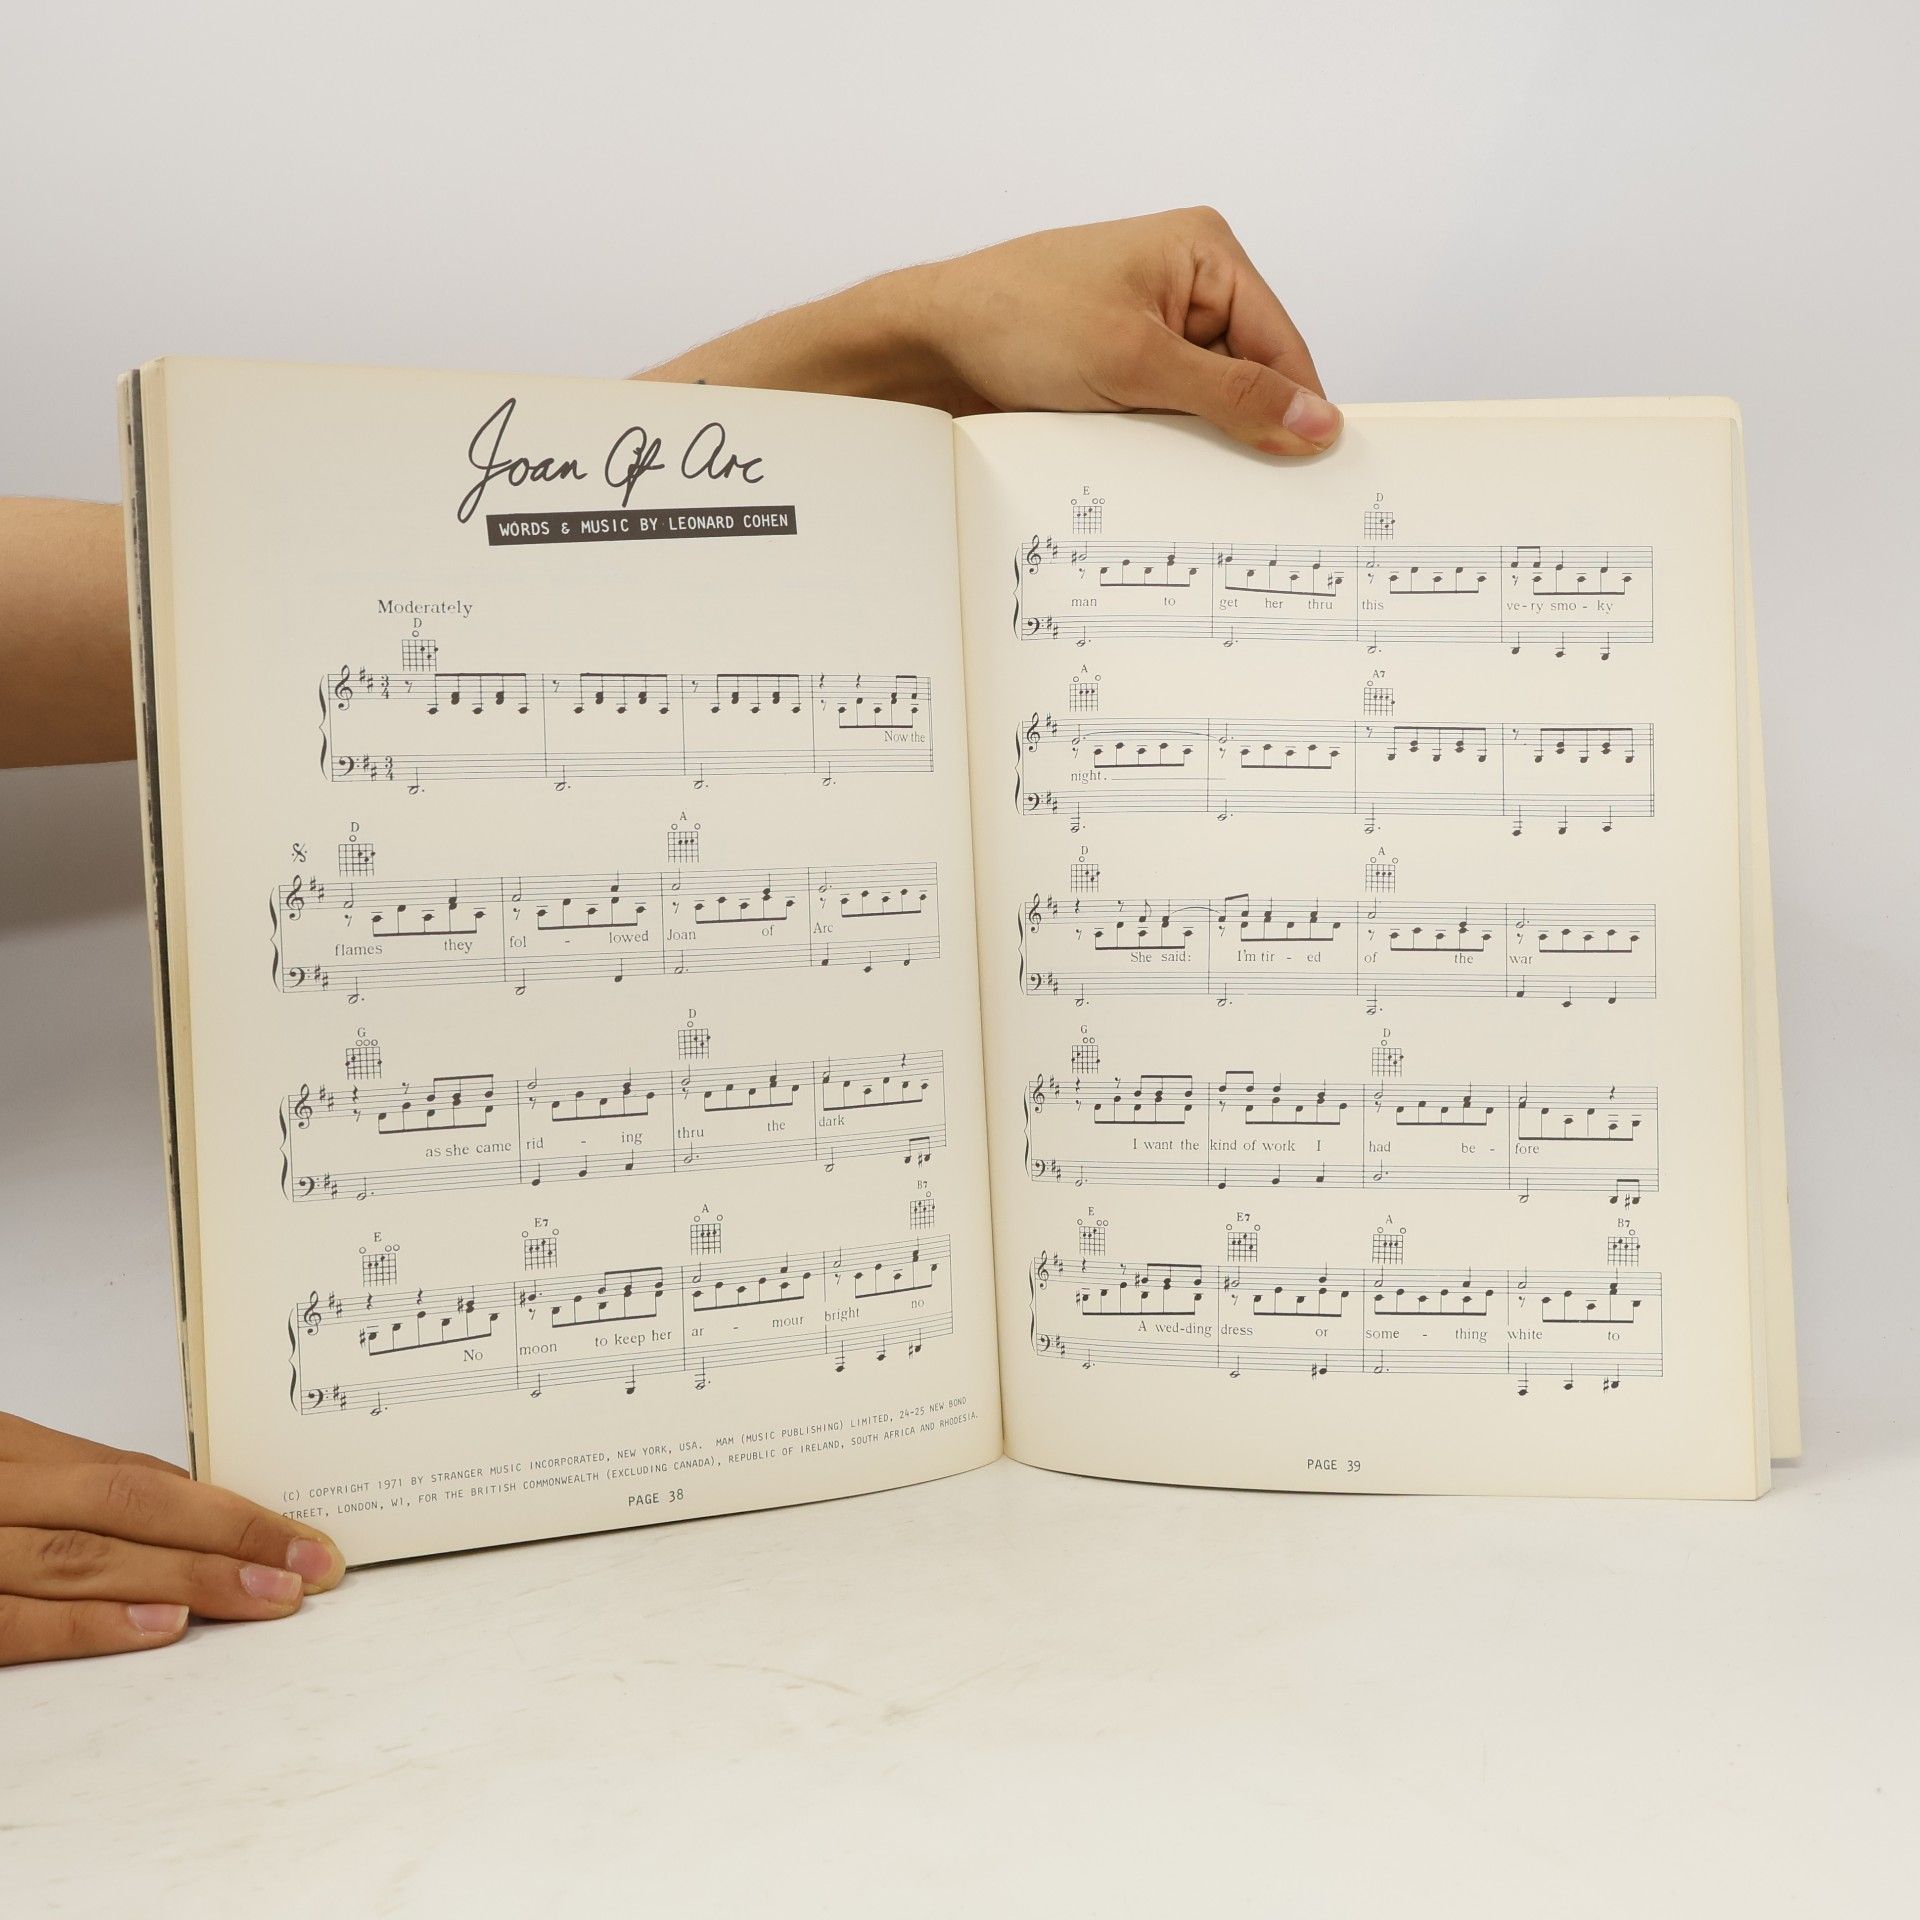 Joan Of Arc
WORDS & MUSIC BY LEONARD COHEN
Moderately
D
Now the
D A
flames they fol - lowed Joan of Arc
G D
as she came rid - ing thru the dark
E E7 A B7
No moon to keep her ar - mour bright no
(C) COPYRIGHT 1971 BY STRANGER MUSIC INCORPORATED, NEW YORK, USA. MAM (MUSIC PUBLISHING) LIMITED, 24-25 NEW BOND
STREET, LONDON, W1, FOR THE BRITISH COMMONWEALTH (EXCLUDING CANADA), REPUBLIC OF IRELAND, SOUTH AFRICA AND RHODESIA.
PAGE 38
E D
man to get her thru this ve-ry smo - ky
A A7
night.
D A
She said: I'm tir - ed of the war
G D
I want the kind of work I had be - fore
E E7 A B7
A wed-ding dress or some - thing white to
PAGE 39